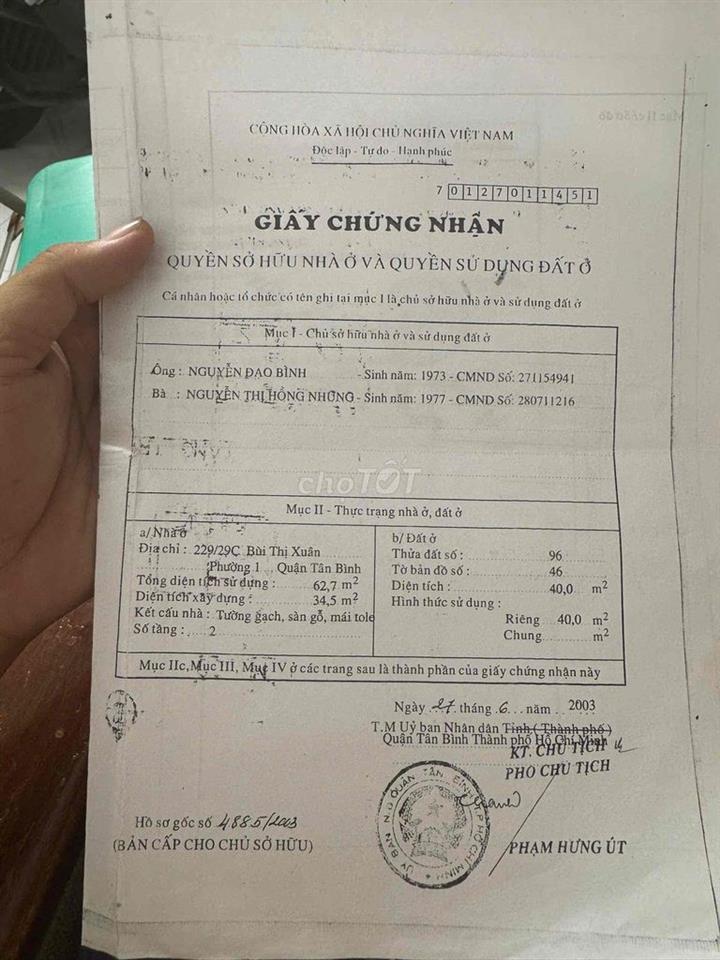 CỘNG HÒA XÃ HỘI CHỦ NGHĨA VIỆT NAM
Độc lập - Tự do - Hạnh phúc
7 0127011451
GIẤY CHỨNG NHẬN
QUYỀN SỞ HỮU NHÀ Ở VÀ QUYỀN SỬ DỤNG ĐẤT Ở
Cá nhân hoặc tổ chức có tên ghi tại mục I là chủ sở hữu nhà ở và sử dụng đất ở
Mục I - Chủ sở hữu nhà ở và sử dụng đất ở
Ông : NGUYỄN ĐẠO BÌNH - Sinh năm: 1973 - CMND Số: 271154941
Bà : NGUYỄN THỊ HỒNG NHUNG - Sinh năm: 1977 - CMND Số: 280711216
chợTỐT
Mục II - Thực trạng nhà ở, đất ở
a/ Nhà ở
Địa chỉ : 229/29C Bùi Thị Xuân
Phường 1 Quận Tân Bình
Tổng diện tích sử dụng : 62,7 m²
Diện tích xây dựng : 34,5 m²
Kết cấu nhà : Tường gạch, sàn gỗ, mái tole
Số tầng : 2
b/ Đất ở
Thửa đất số: 96
Tờ bản đồ số: 46
Diện tích : 40,0 m²
Hình thức sử dụng :
Riêng 40,0 m²
Chung m²
Mục IIc, Mục III, Mục IV ở các trang sau là thành phần của giấy chứng nhận này
Ngày 27 tháng 6 năm 2003
T.M Uỷ ban Nhân dân Tỉnh ( Thành phố )
Quận Tân Bình Thành phố Hồ Chí Minh
KT. CHỦ TỊCH
PHÓ CHỦ TỊCH
ỦY BAN N.D QUẬN TÂN BÌNH T.P HỒ CHÍ MINH
Hồ sơ gốc số 4885/2003
(BẢN CẤP CHO CHỦ SỞ HỮU)
PHẠM HƯNG ÚT